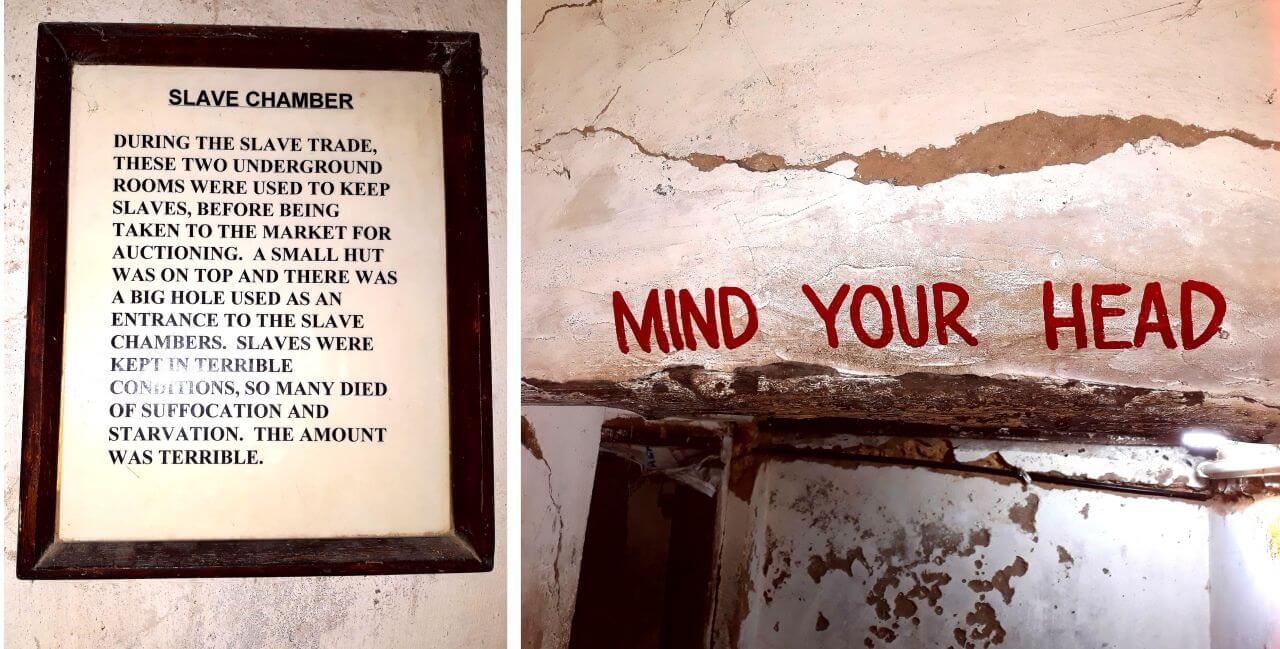 SLAVE CHAMBER
DURING THE SLAVE TRADE,
THESE TWO UNDERGROUND
ROOMS WERE USED TO KEEP
SLAVES, BEFORE BEING
TAKEN TO THE MARKET FOR
AUCTIONING. A SMALL HUT
WAS ON TOP AND THERE WAS
A BIG HOLE USED AS AN
ENTRANCE TO THE SLAVE
CHAMBERS. SLAVES WERE
KEPT IN TERRIBLE
CONDITIONS, SO MANY DIED
OF SUFFOCATION AND
STARVATION. THE AMOUNT
WAS TERRIBLE.
MIND YOUR HEAD